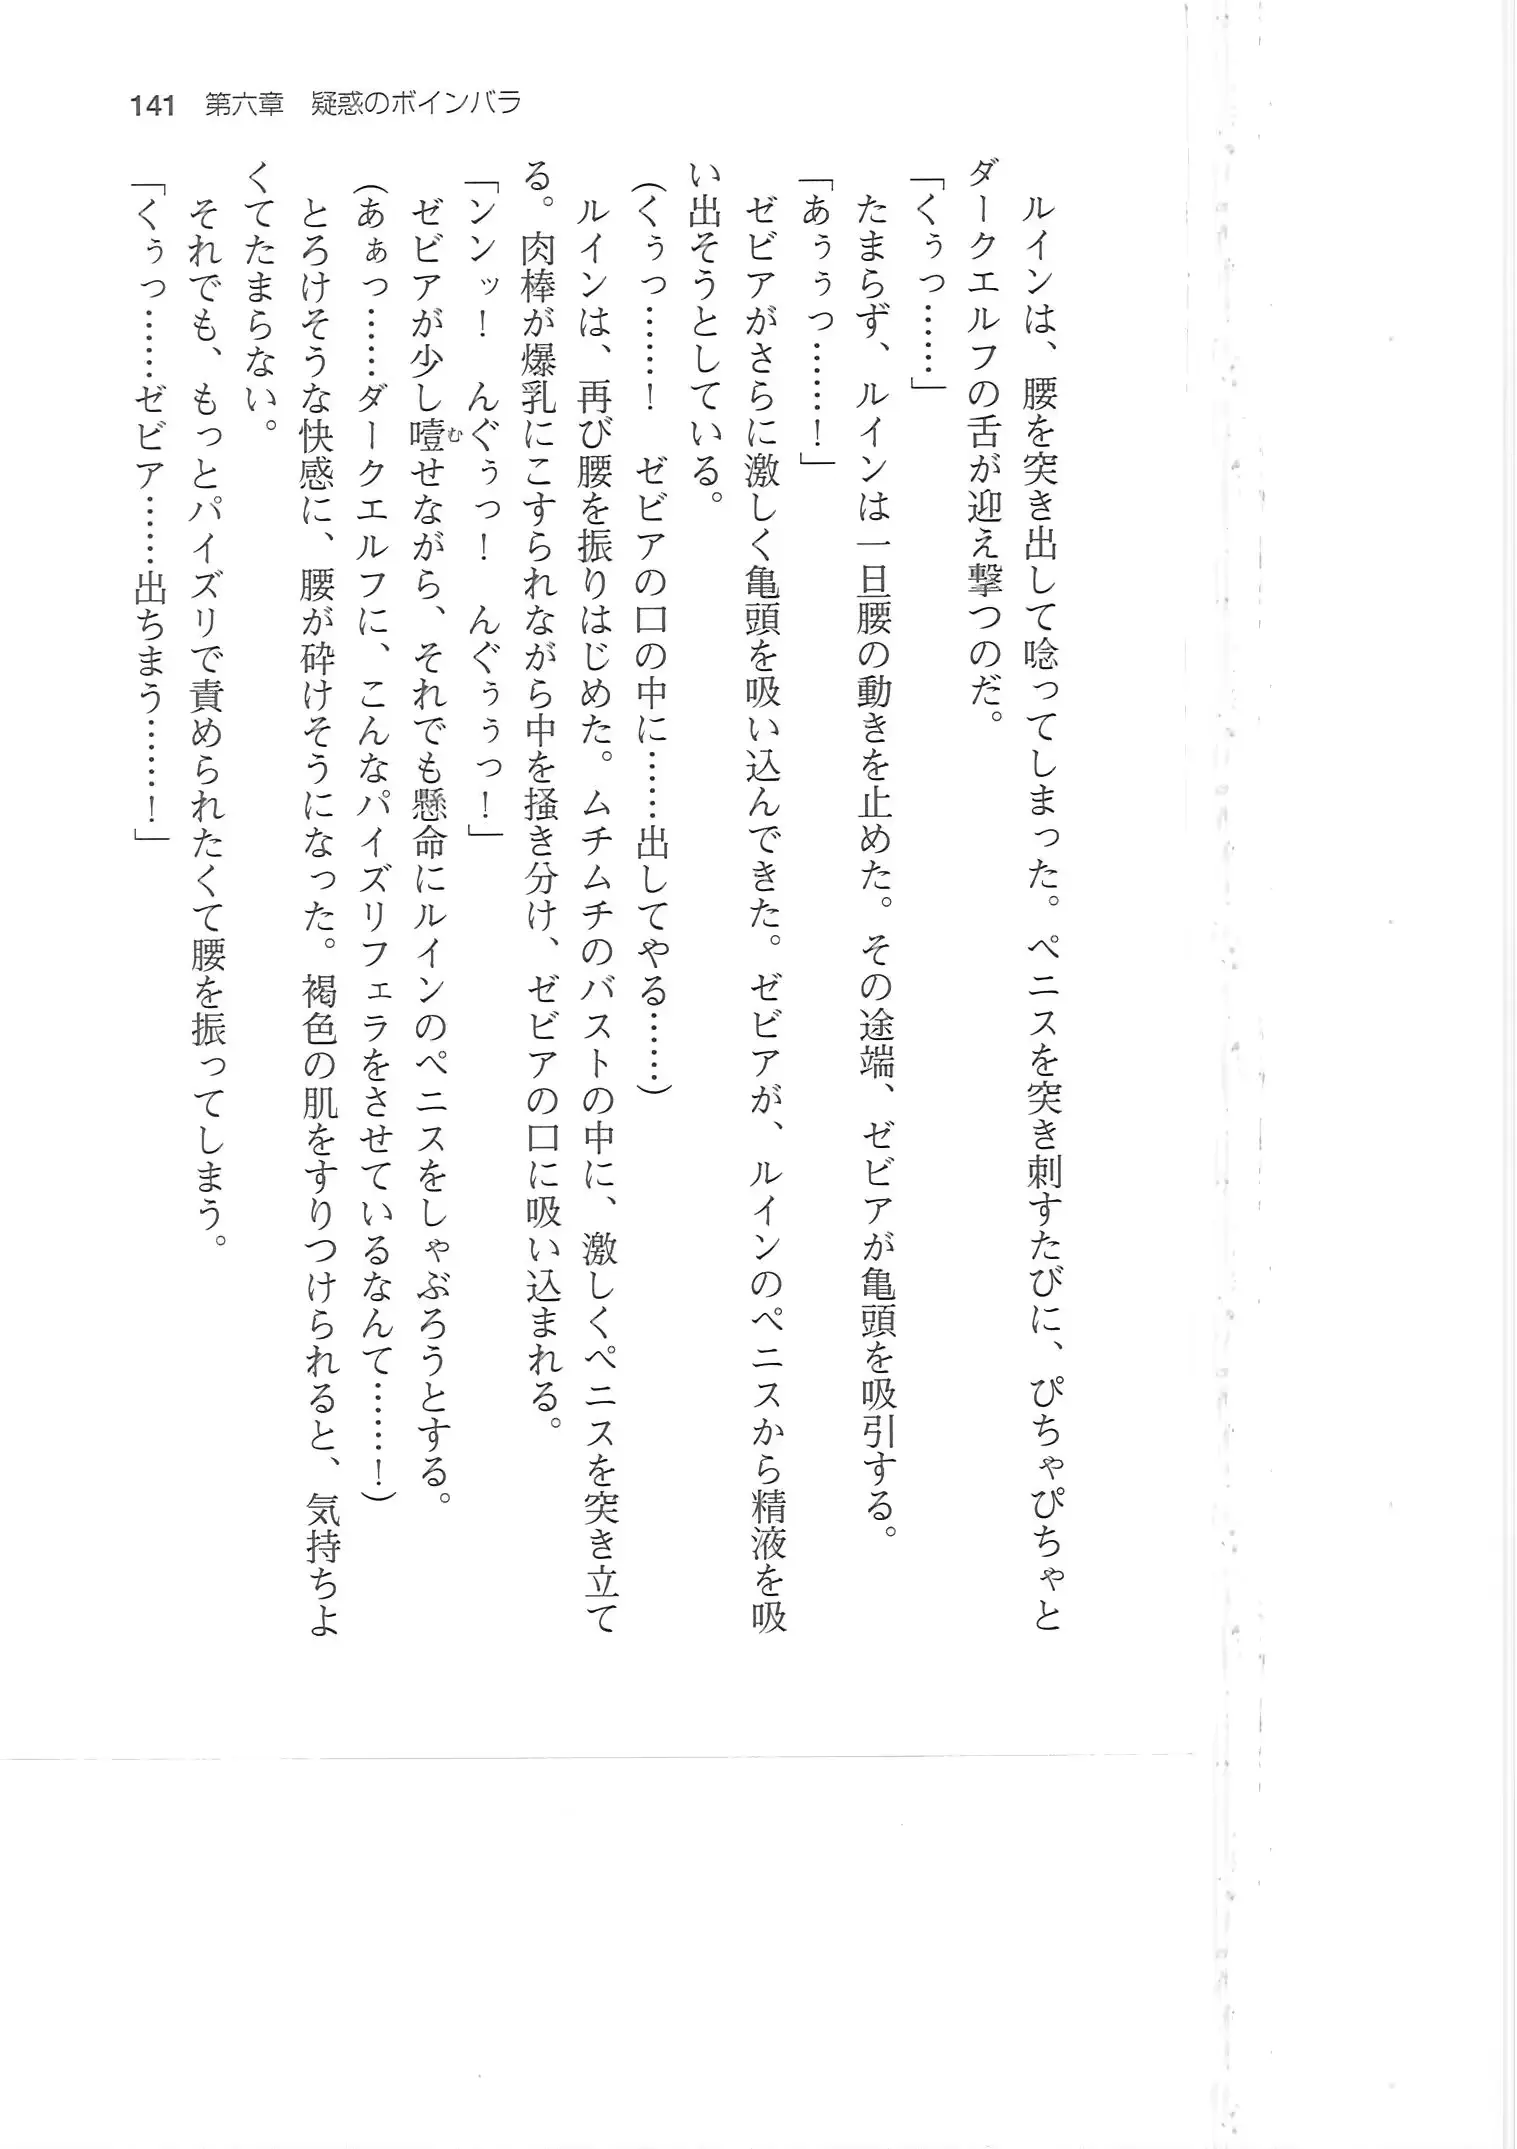 141 第六章 疑惑のボインバラ
ルインは、腰を突き出して唸ってしまった。ペニスを突き刺すたびに、ぴちゃぴちゃと
ダークエルフの舌が迎え撃つのだ。
「くぅっ……」
たまらず、ルインは一旦腰の動きを止めた。その途端、ゼビアが亀頭を吸引する。
「あぅぅっ……!」
ゼビアがさらに激しく亀頭を吸い込んできた。ゼビアが、ルインのペニスから精液を吸
い出そうとしている。
(くぅっ……! ゼビアの口の中に……出してやる……)
ルインは、再び腰を振りはじめた。ムチムチのバストの中に、激しくペニスを突き立て
る。肉棒が爆乳にこすられながら中を掻き分け、ゼビアの口に吸い込まれる。
「ンンッ! んぐぅっ! んぐぅぅっ!」
ゼビアが少し噎せながら、それでも懸命にルインのペニスをしゃぶろうとする。
(あぁっ……ダークエルフに、こんなパイズリフェラをさせているなんて……!)
とろけそうな快感に、腰が砕けそうになった。褐色の肌をすりつけられると、気持ちよ
くてたまらない。
それでも、もっとパイズリで責められたくて腰を振ってしまう。
「くぅっ……ゼビア……出ちまう……!」